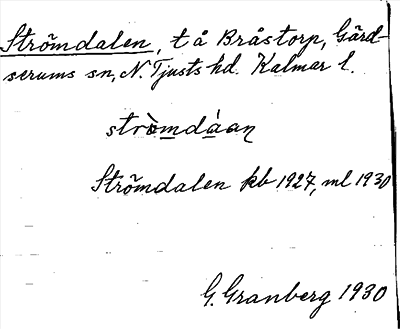 Strömdalen, t å Bråstorp, Gärd-
serums sn, N. Tjusts hd. Kalmar l.
strò̈mdáan
Strömdalen kb 1927, ml 1930
G. Granberg 1930